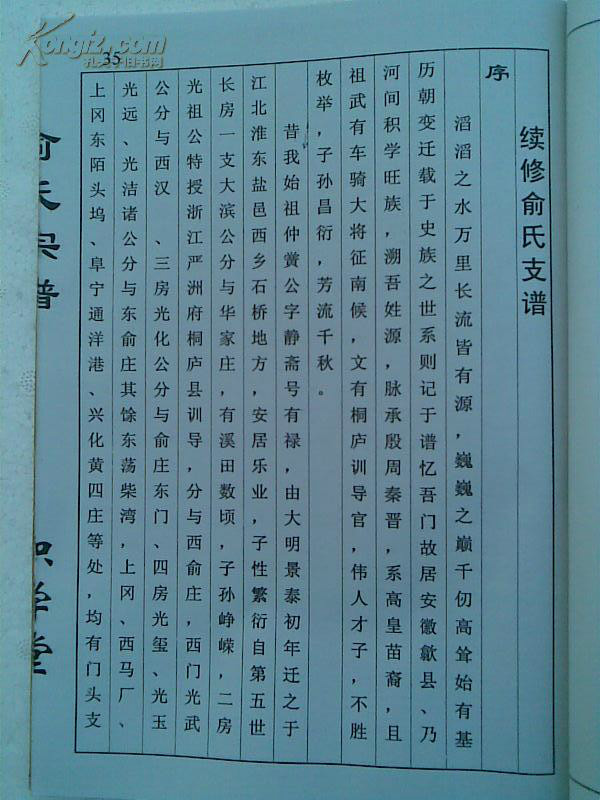 续修俞氏支谱
序
滔滔之水万里长流皆有源，巍巍之巅千仞高耸始有基
历朝变迁载于史族之世系则记于谱忆吾门故居安徽歙县、乃
河间积学旺族，溯吾姓源，脉承殷周秦晋，系高皇苗裔，且
祖武有车骑大将征南候，文有桐庐训导官，伟人才子，不胜
枚举，子孙昌衍，芳流千秋。
昔我始祖仲黉公字静斋号有禄，由大明景泰初年迁之于
江北淮东盐邑西乡石桥地方，安居乐业，子性繁衍自第五世
长房一支大滨公分与华家庄，有溪田数顷，子孙峥嵘，二房
光祖公特授浙江严洲府桐庐县训导，分与西俞庄，西门光武
公分与西汉、三房光化公分与俞庄东门、四房光玺、光玉
光远、光洁诸公分与东俞庄其馀东荡柴湾，上冈、西马厂、
上冈东陌头坞、阜宁通洋港、兴化黄四庄等处，均有门头支
35
俞氏宗谱
积学堂
Kongfz.com
孔夫子旧书网